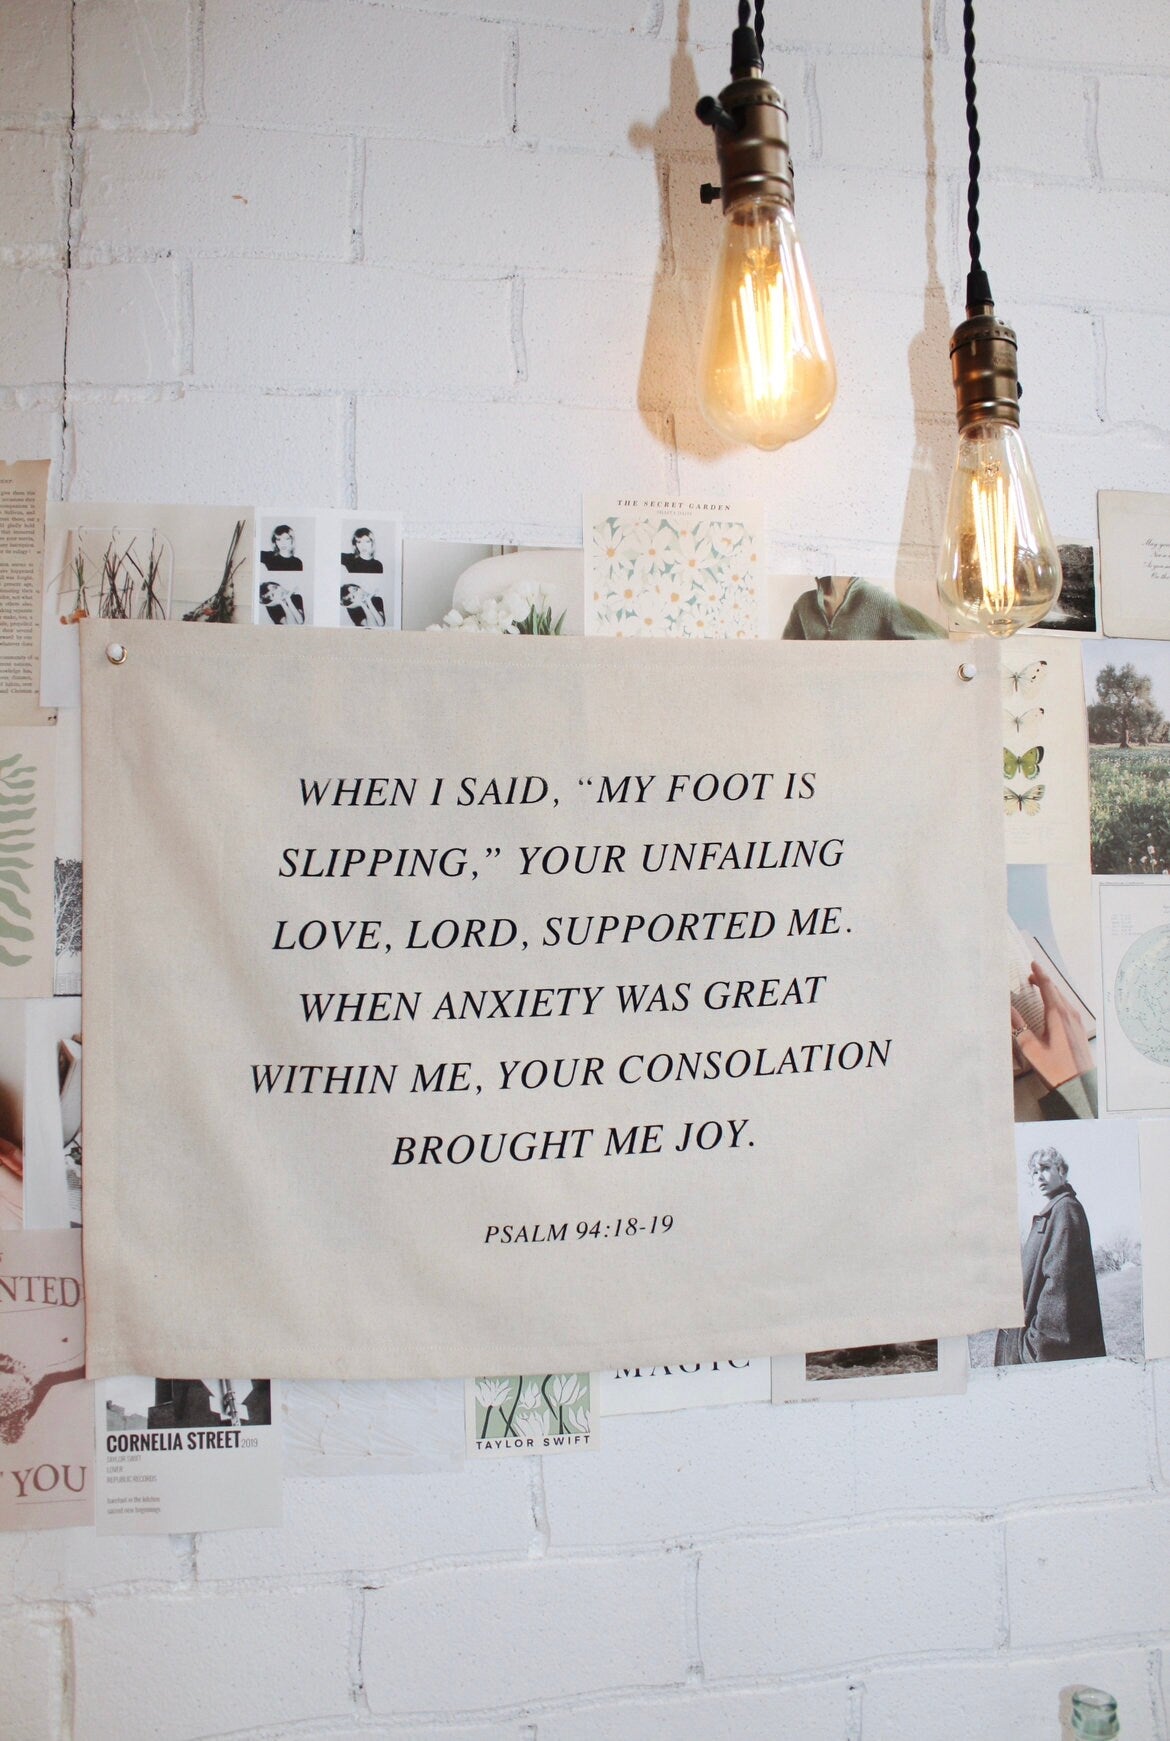 THE SECRET GARDEN
WHEN I SAID, “MY FOOT IS
SLIPPING,” YOUR UNFAILING
LOVE, LORD, SUPPORTED ME.
WHEN ANXIETY WAS GREAT
WITHIN ME, YOUR CONSOLATION
BROUGHT ME JOY.
PSALM 94:18-19
NTED
YOU
MAGIC
CORNELIA STREET 2019
TAYLOR SWIFT
LOVER
REPUBLIC RECORDS
barefoot in the kitchen
sacred new beginnings
TAYLOR SWIFT